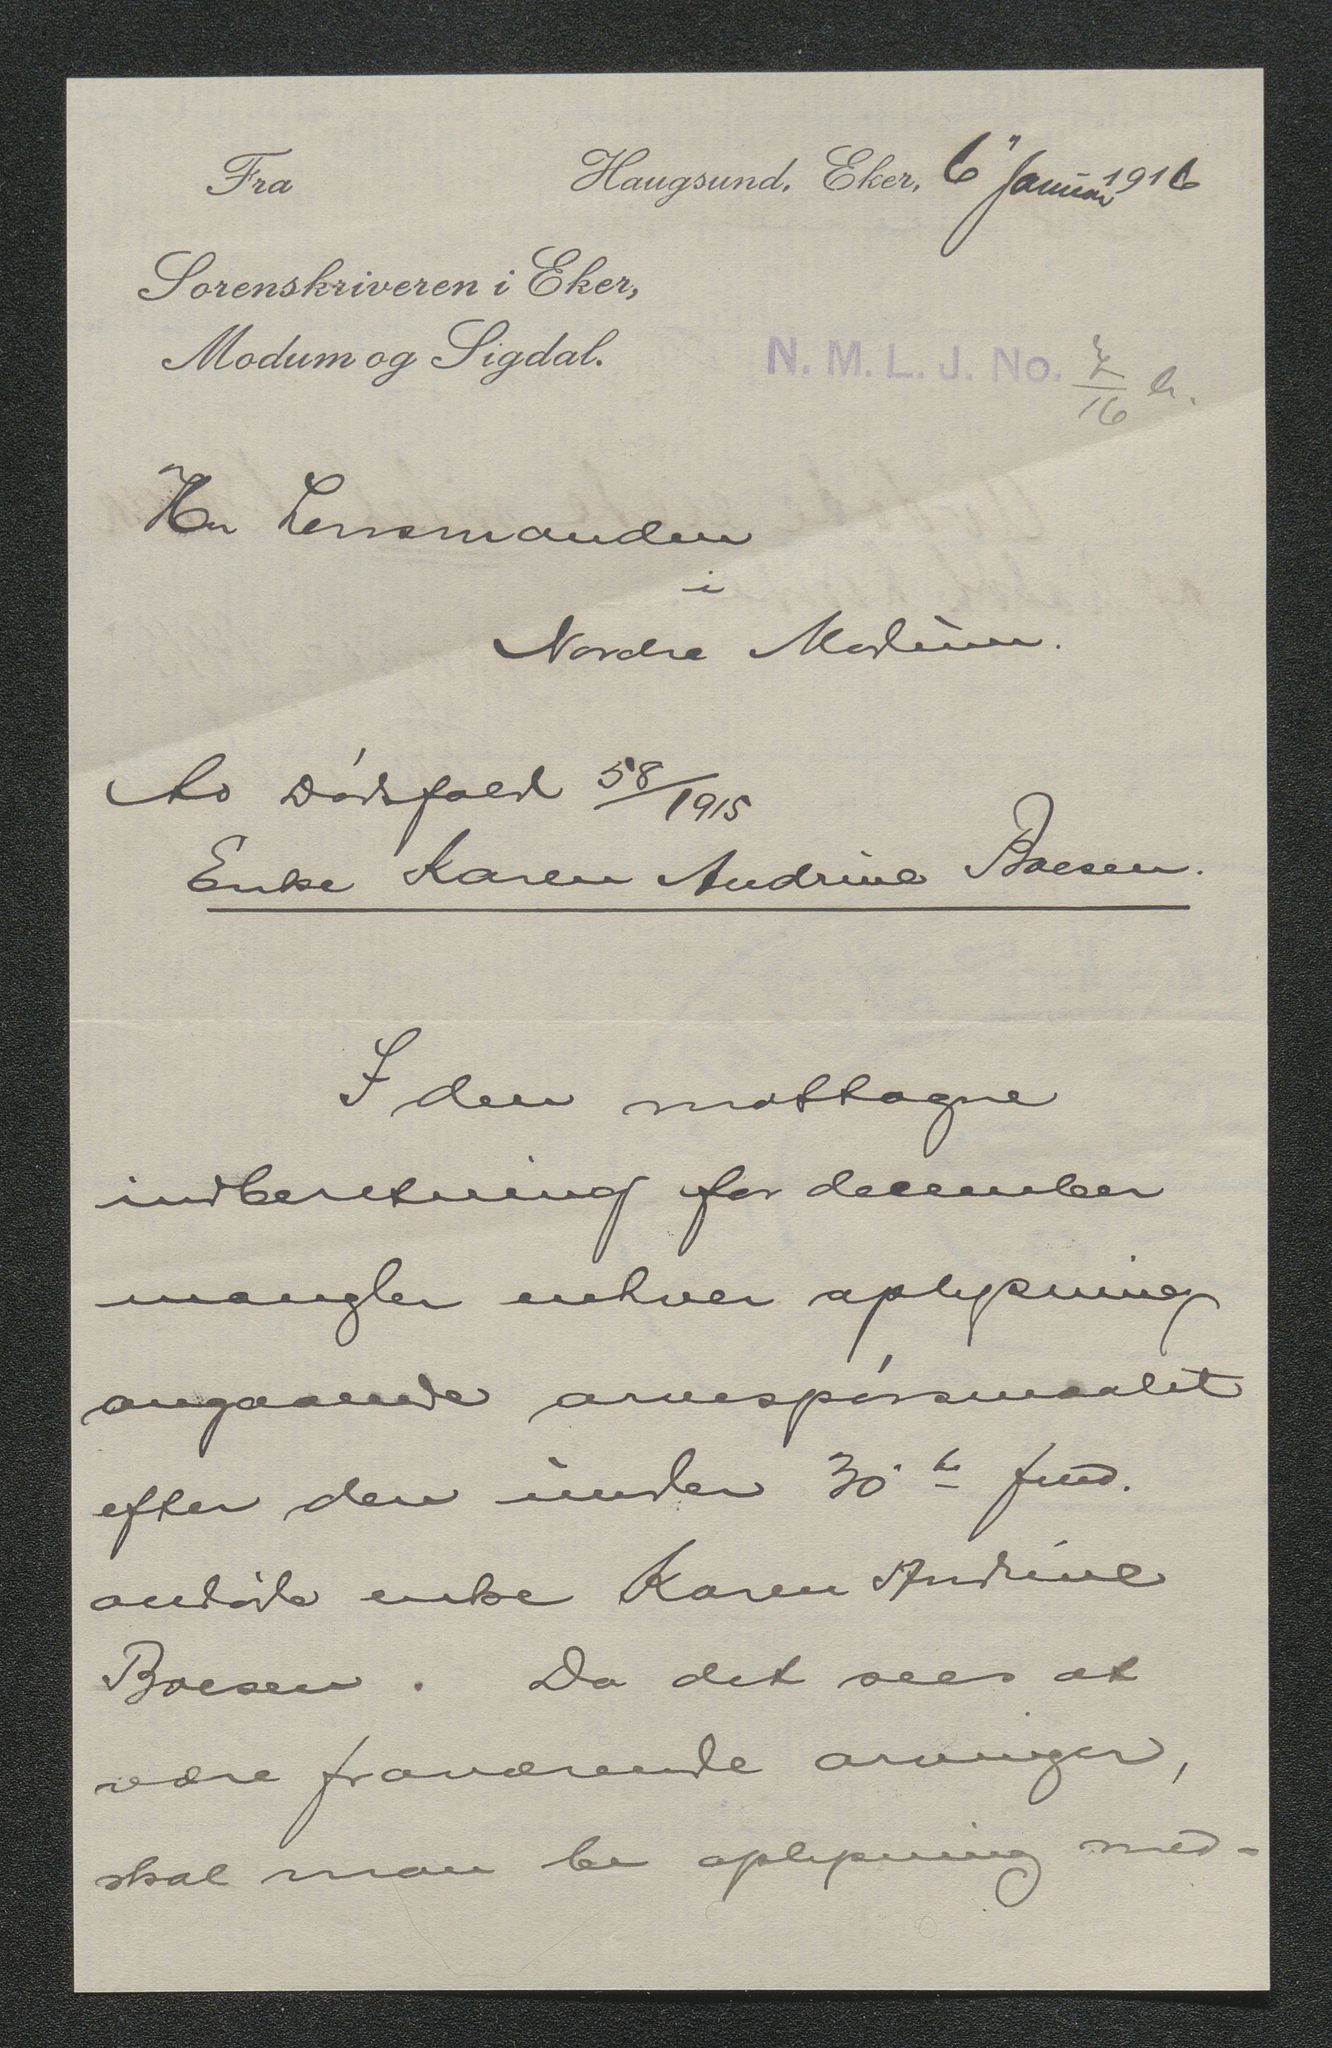 Fra
Haugsund, Eker, 6" Januar 1916
Sorenskriveren i Eker,
Modum og Sigdal.
N. M. L. J. No. 7/16
Hr Lensmanden
i
Nordre Modum.
Ao Dødsfald 58/1915
Enke Karen Andrine Boesen.
I den mottagne
indberetning for december
mangler enhver oplysning
angaaende arvespørsmaalet
efter den under 30.te
avdøde enke Karen Andrine
Boesen. Da det sees at
være fraværende arvinger,
skal man be oplysning med-